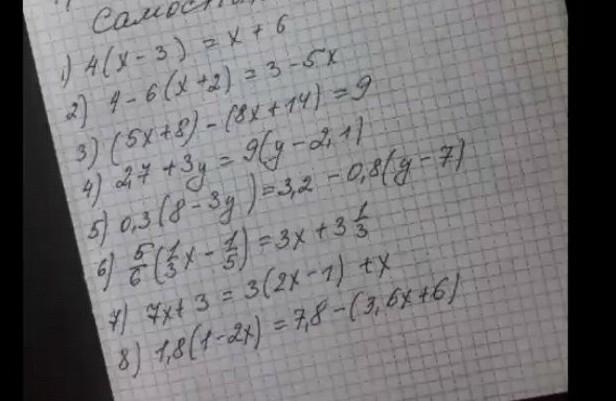 1) 4(x-3) = x+6
2) 4-6(x+2) = 3-5x
3) (5x+8)-(8x+14)=9
4) 2,7+3y = 9(y-2,1)
5) 0,3(8-3y)=3,2-0,8(y-7)
6) 5/6(1/3x-1/5)=3x+3 1/3
7) 7x+3 = 3(2x-1)+x
8) 1,8(1-2x)=7,8-(3,6x+6)